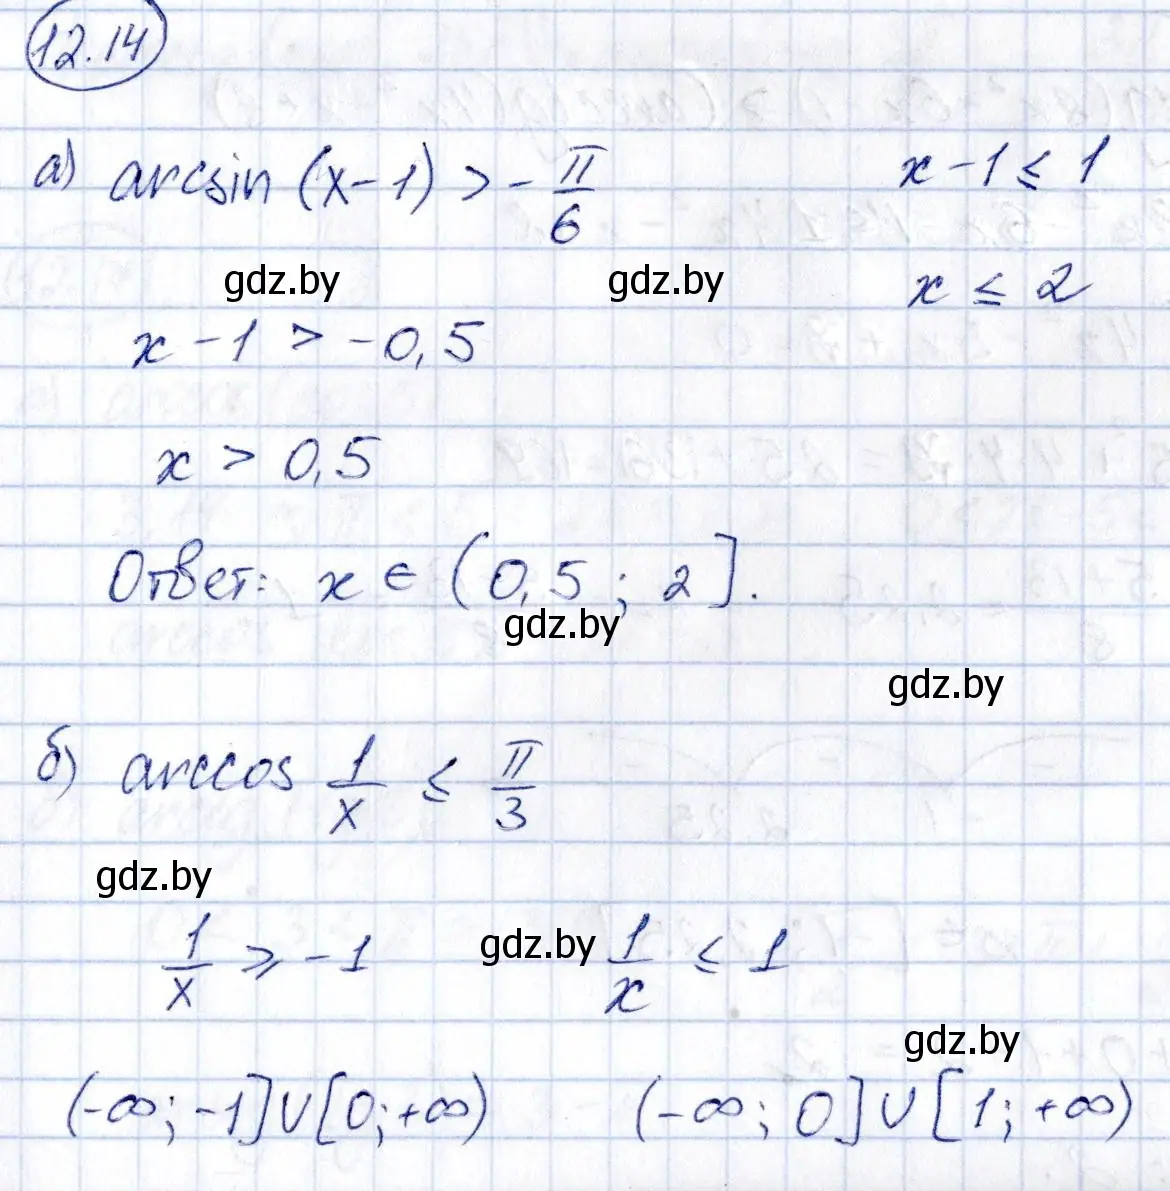 12.14
а) arcsin (x-1) > -π/6    x-1 ≤ 1
gdz.by    gdz.by    x ≤ 2
x-1 > -0,5
x > 0,5
Ответ: x ∈ (0,5 ; 2].
gdz.by
gdz.by
б) arccos 1/x ≤ π/3
gdz.by
1/x ⩾ -1    gdz.by    1/x ≤ 1
gdz.by
(-∞; -1]∪[0;+∞)    (-∞; 0]∪[1; +∞)